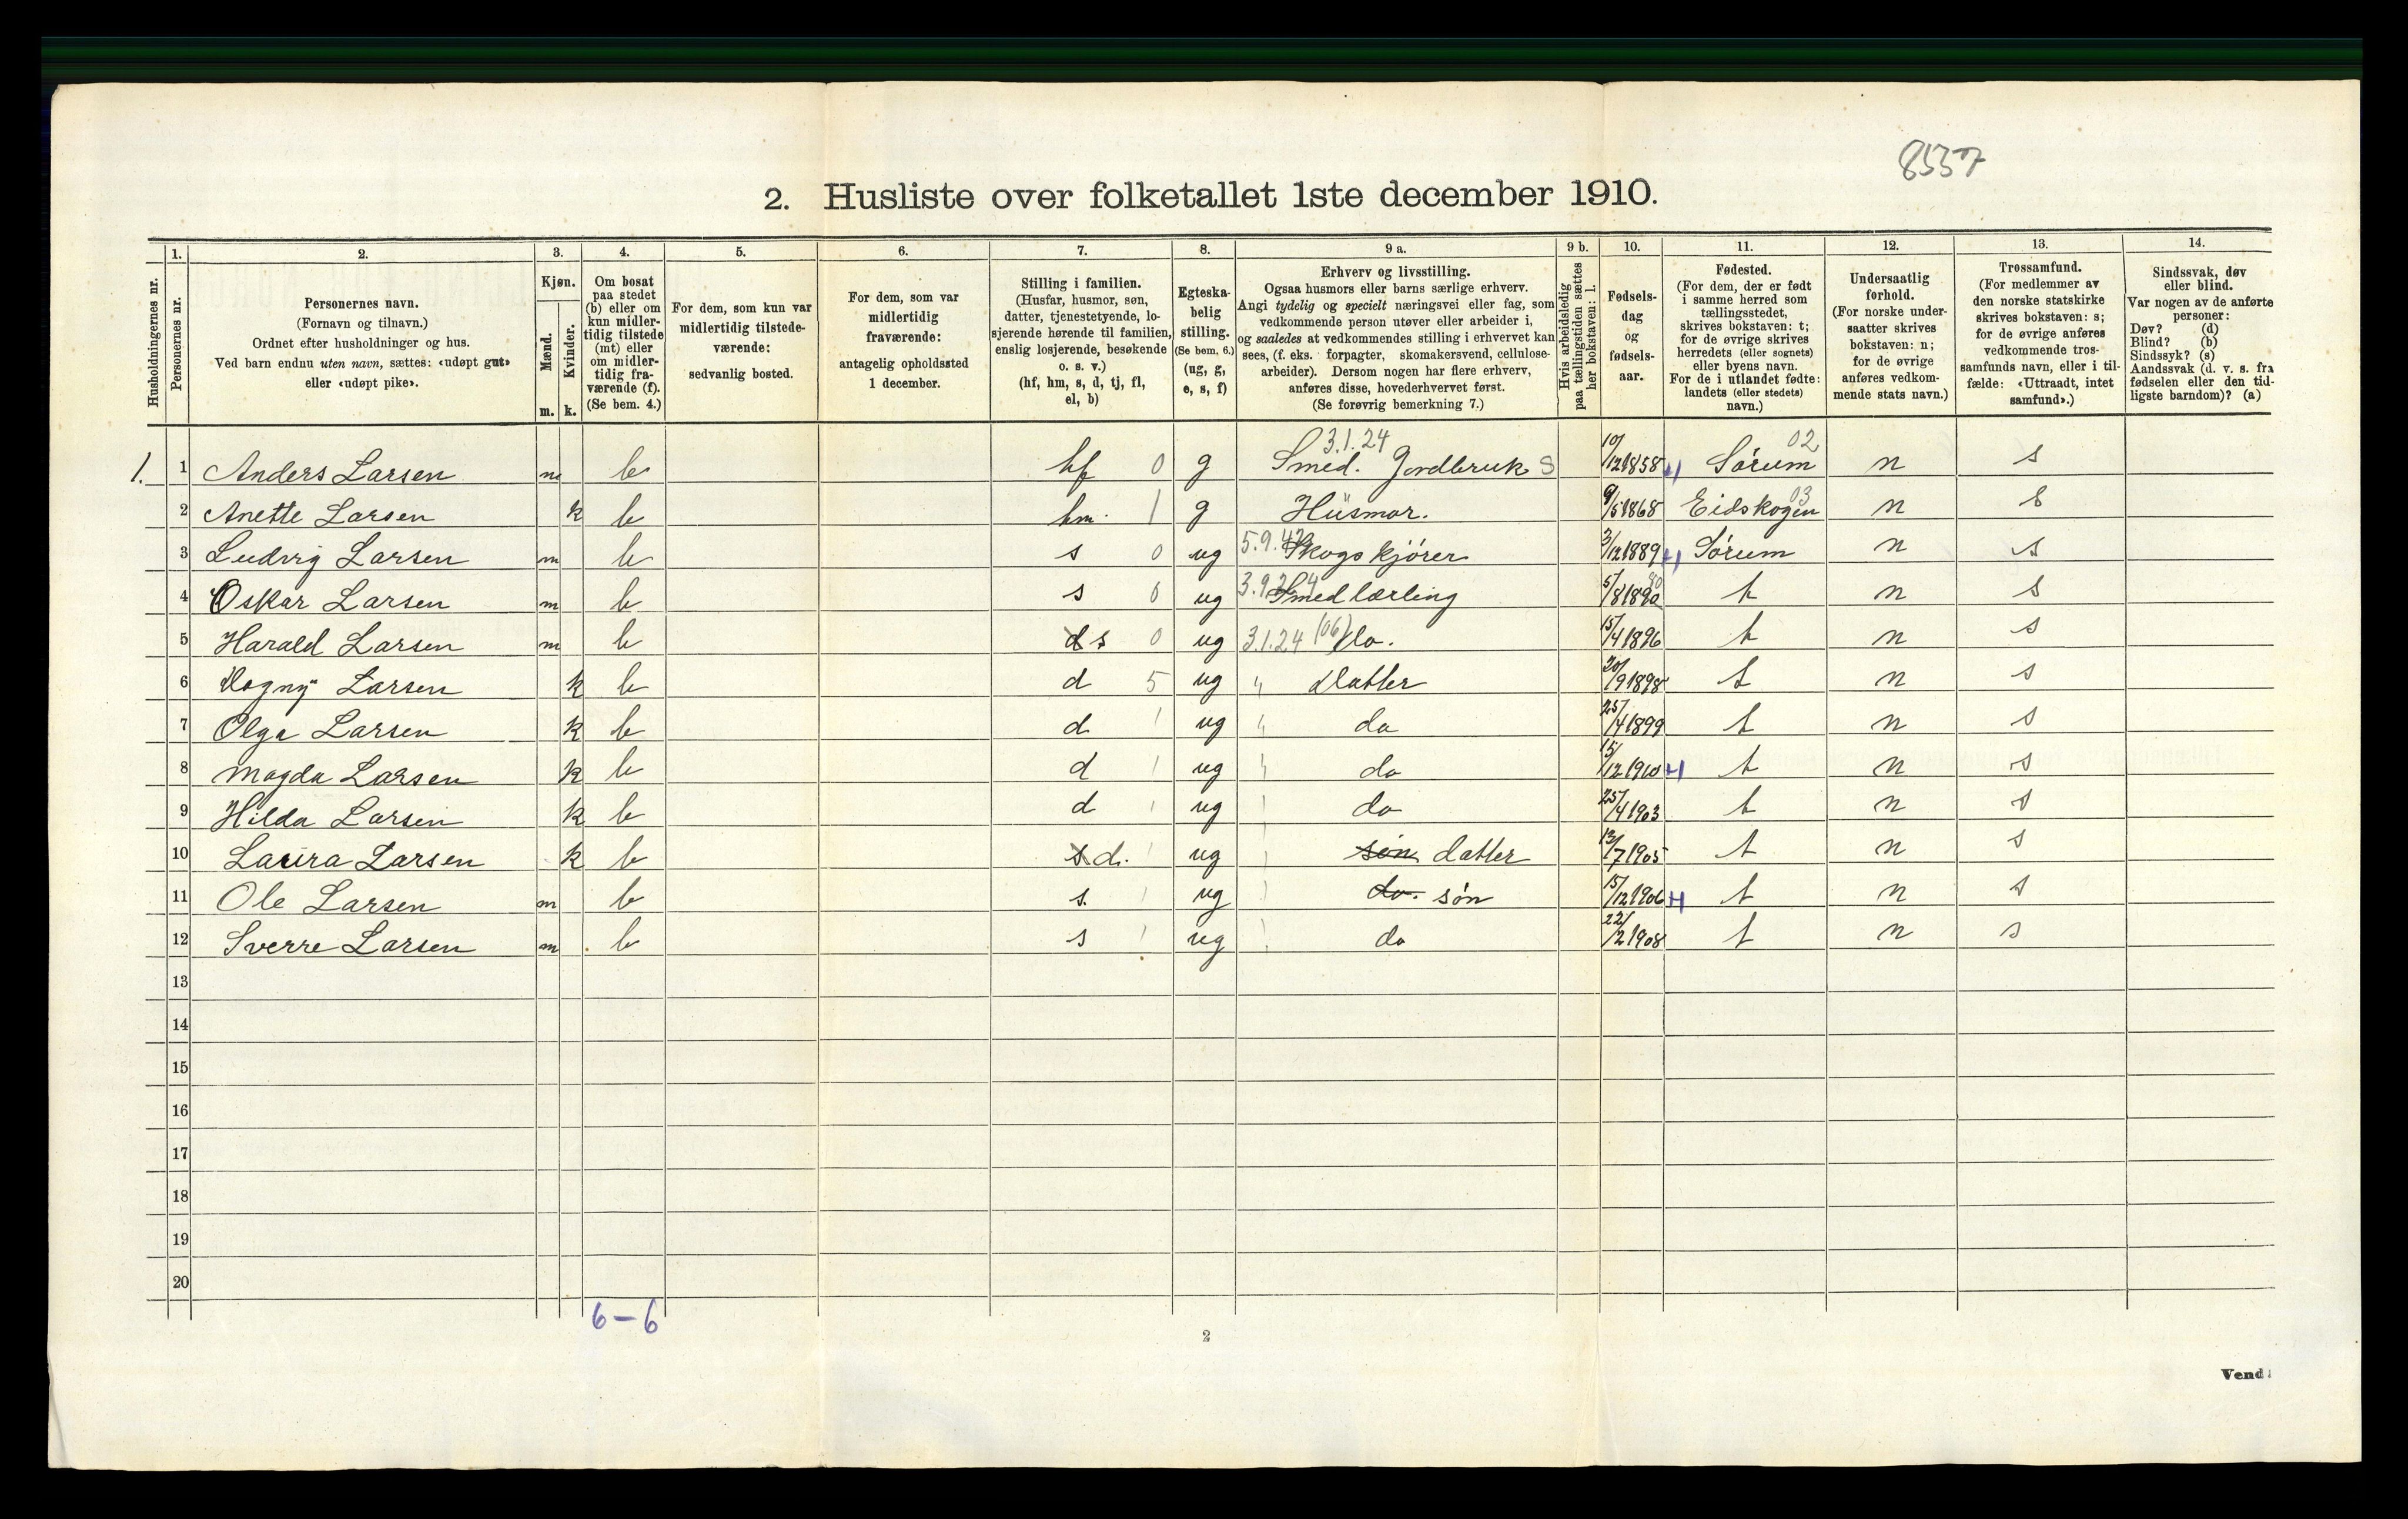 8557
2. Husliste over folketallet 1ste december 1910.
Husholdningernes nr.
1. Personernes nr.
2. Personernes navn.
(Fornavn og tilnavn.)
Ordnet efter husholdninger og hus.
Ved barn endnu uten navn, sættes: «udøpt gut»
eller «udøpt pike».
3. Kjøn.
Mænd. m.
Kvinder. k.
4. Om bosat
paa stedet
(b) eller om
kun midler-
tidig tilstede
(mt) eller
om midler-
tidig fra-
værende (f).
(Se bem. 4.)
5. For dem, som kun var
midlertidig tilstede-
værende:
sedvanlig bosted.
6. For dem, som var
midlertidig
fraværende:
antagelig opholdssted
1 december.
7. Stilling i familien.
(Husfar, husmor, søn,
datter, tjenestetyende, lo-
sjerende hørende til familien,
enslig losjerende, besøkende
o. s. v.)
(hf, hm, s, d, tj, fl,
el, b)
8. Egteska-
belig
stilling.
(Se bem. 6.)
(ug, g,
e, s, f)
9 a. Erhverv og livsstilling.
Ogsaa husmors eller barns særlige erhverv.
Angi tydelig og specielt næringsvei eller fag, som
vedkommende person utøver eller arbeider i,
og saaledes at vedkommendes stilling i erhvervet kan
sees, (f. eks. forpagter, skomakersvend, cellulose-
arbeider). Dersom nogen har flere erhverv,
anføres disse, hovederhvervet først.
(Se forøvrig bemerkning 7.)
9 b. Hvis arbeidsledig
paa tællingstiden sættes
her bokstaven: l.
10. Fødsels-
dag
og
fødsels-
aar.
11. Fødested.
(For dem, der er født
i samme herred som
tællingsstedet,
skrives bokstaven: t;
for de øvrige skrives
herredets (eller sognets)
eller byens navn.
For de i utlandet fødte:
landets (eller stedets)
navn.)
12. Undersaatlig
forhold.
(For norske under-
saatter skrives
bokstaven: n;
for de øvrige
anføres vedkom-
mende stats navn.)
13. Trossamfund.
(For medlemmer av
den norske statskirke
skrives bokstaven: s;
for de øvrige anføres
vedkommende tros-
samfunds navn, eller i til-
fælde: «Uttraadt, intet
samfund».)
14. Sindssvak, døv
eller blind.
Var nogen av de anførte
personer:
Døv? (d)
Blind? (b)
Sindssyk? (s)
Aandssvak (d. v. s. fra
fødselen eller den tid-
ligste barndom)? (a)
3.1.24 02
1. 1 Anders Larsen m b hf 0 g Smed. Jordbruk S 10/12 1858 Sørum n s
03
2 Anette Larsen k b hm. 1 g Hüsmor. 9/5 1868 Eidskogen n s
3 Ludvig Larsen m b s 0 ug Skogskjører 3/12 1889 Sørum n s
4 Oskar Larsen m b s 0 ug Smedlærling 5/8 t n s
5 Harald Larsen m b d s 0 ug 3.1.24 (06) do. 15/4 1896 t n s
6 Dagny Larsen k b d 5 ug " Datter 20/9 1898 t n s
7 Olga Larsen k b d 1 ug " do 25/4 1899 t n s
8 Magda Larsen k b d 1 ug do 15/12 1910 t n s
9 Hilda Larsen k b d 1 ug do 25/4 1903 t n s
10 Laura Larsen k b s d. 1 ug søn datter 13/7 1905 t n s
11 Ole Larsen m b s. 1 ug do. søn 15/12 1906 t n s
12 Sverre Larsen m b s 1 ug do 22/2 1908 t n s
13
14
15
16
17
18
19
20
6-6
2
Vend!